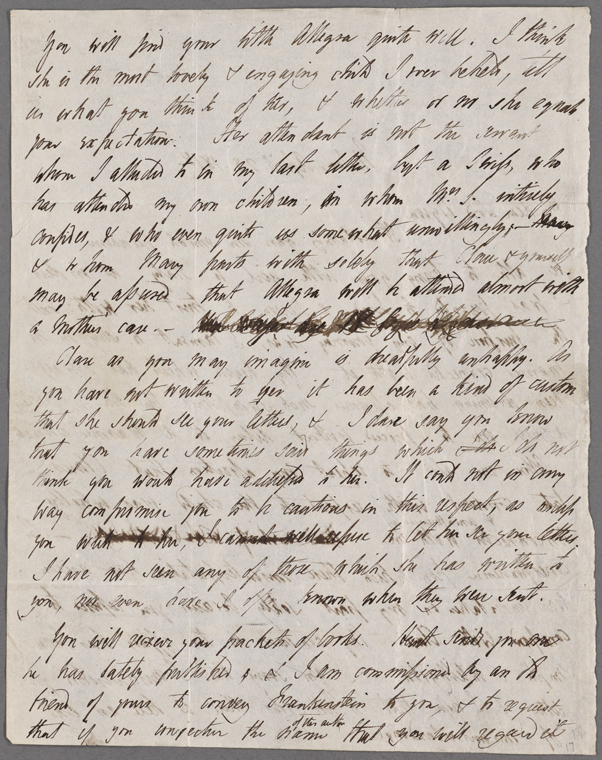 You will find your little Allegra quite well. I think
she is the most lovely & engaging child I ever beheld, tell
us what you think of her, & whether or no she equals
your expectation. Her attendant is not the servant
whom I alluded to in my last letter, but a Swiss, who
has attended my own children, in whom Mrs. S. entirely
confides, & who even quits us somewhat unwillingly—
& whom Mary parts with solely that Clare & yourself
may be assured that Allegra will be attended almost with
a Mother's care.—
Clare as you may imagine is dreadfully unhappy. As
you have not written to her it has been a kind of custom
that she should see your letters, & I dare say you know
that you have sometimes said things which I do not
think you would have addressed to her. It could not in any
way compromise you to be cautious in this respect, as unless
you to let her see your letters
I have not seen any of those which she has written to
you nor even have I often known when they were sent.
You will receive your packets of books. Hunt sends you one
he has lately published & I am commissioned by an old
friend of yours to convey Frankenstein to you & to request
that if you conjecture the name of the author that you will regard it